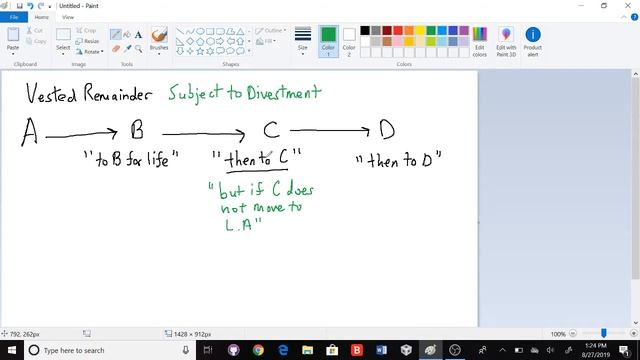 Untitled - Paint
File Home View
Paste
Cut
Copy
Clipboard
Select
Crop
Resize
Rotate
Image
Tools
Brushes
Shapes
Outline
Fill
Size
Color 1
Color 2
Colors
Edit colors
Edit with Paint 3D
Product alert
Vested Remainder Subject to Divestment
A B C D
"to B for life" "then to C" "then to D"
"but if C does
not move to
L.A"
792, 262px
1428 × 912px
100%
Type here to search
1:24 PM
8/27/2019